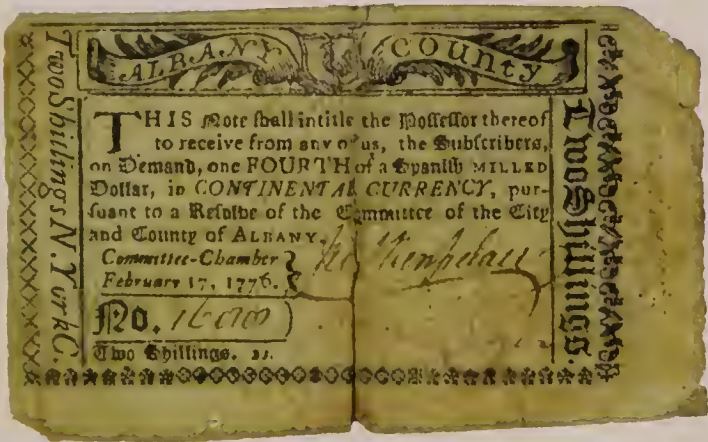 ALBANY COUNTY
Two Shillings N. York C.
THIS Note shall intitle the Possessor thereof
to receive from any of us, the Subscribers,
on Demand, one FOURTH of a Spanish MILLED
Dollar, in CONTINENTAL CURRENCY, pur-
suant to a Resolve of the Committee of the City
and County of ALBANY.
Committee-Chamber
February 17, 1776.
No.
Two Shillings. 2s.
Two Shillings.